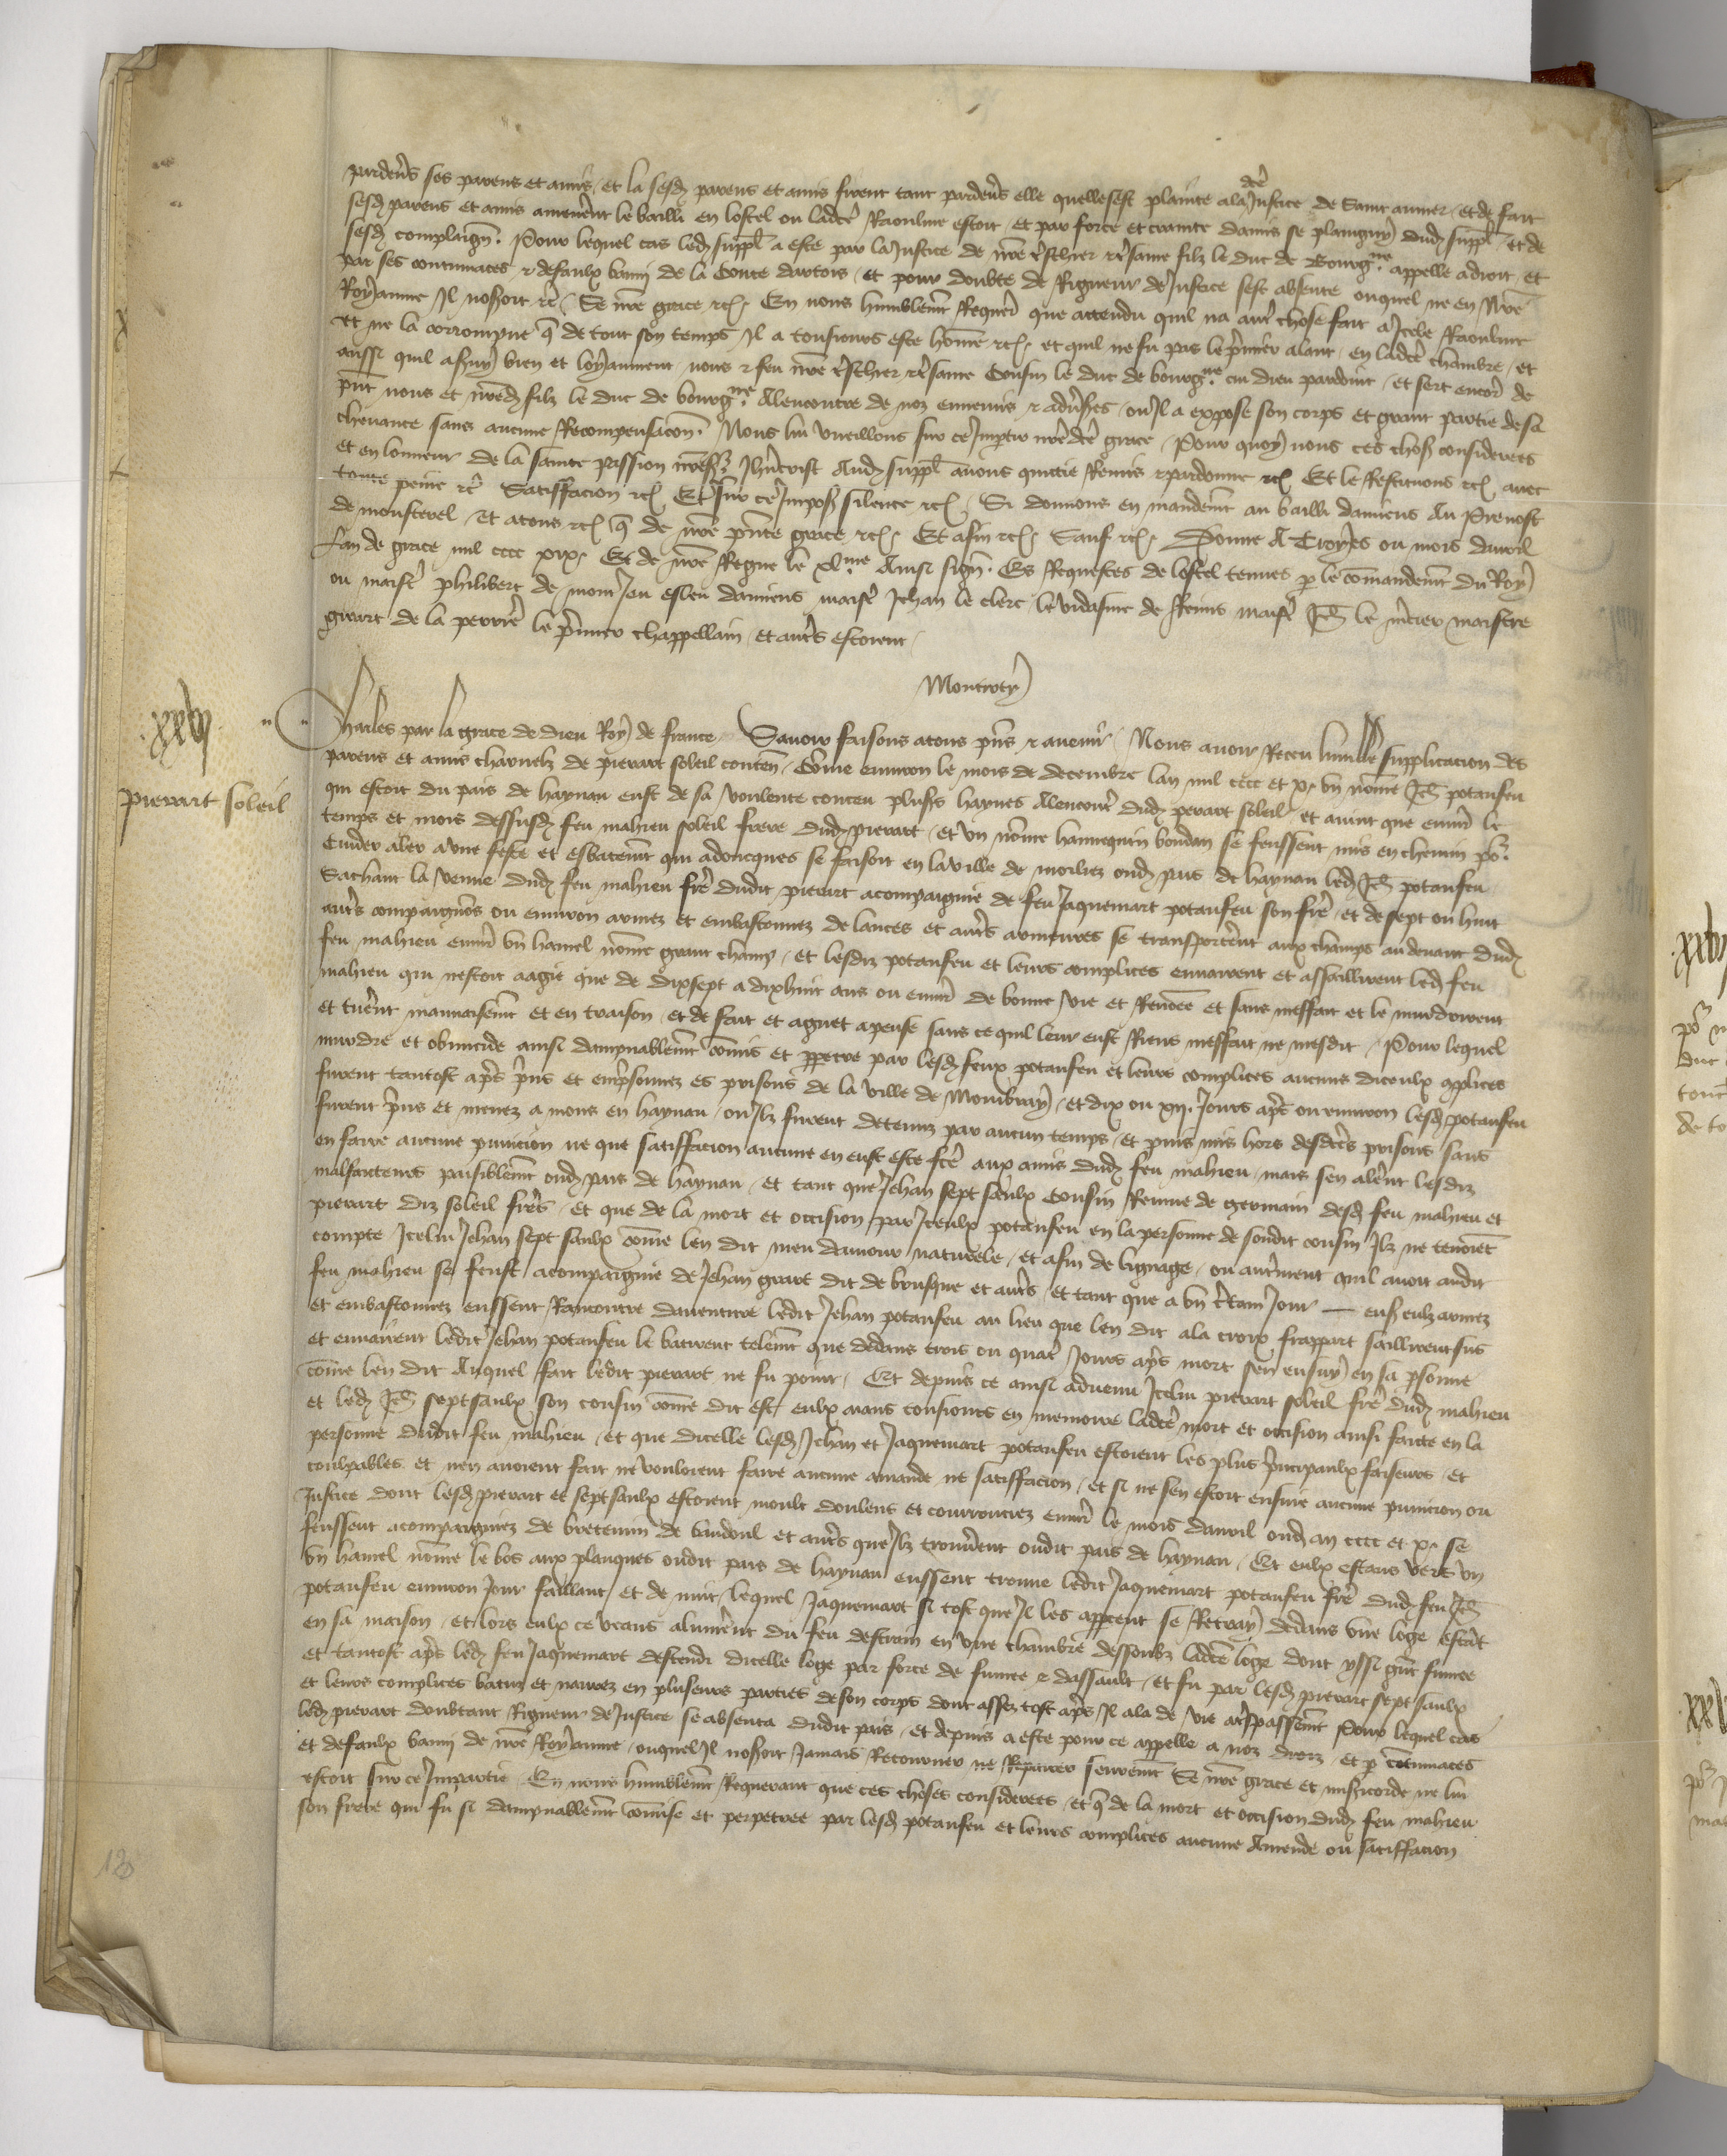 pardevs ses parens et amis / et la sesd parens et amis firent tant pardevs elle quelle sest plainte ala dce Justice de Saint aumer / et de fait
sesd parens et amis amenerent le bailli en lostel ou ladce Raouline estoit / et par force et crainte damis se plaigny dud suppl / et de
sesd complaign. Pour lequel cas led suppl a este par la Justice de nre tschier et tsame filz le duc de Bourgne appelle a droit / et
par ses contumaces & defaulx banny de la Conte dartois / et pour doubte de Rigueur de Justice sest absente ouquel ne en nre
Royaume Il noseroit etc / Se nre grace etc / En nous humblemt Requert que attendu quil na autre chose fait a Icelle Raouline
et ne la corrompue q de tout son temps Il a tousiours este homme etc / et quil ne fu pas le premier alant / en ladce chambre / et
aussi quil a servy bien et loyaument nous & feu nre tschier et tsame Cousin le duc de bourgne cui dieu pardoint / et sert encore de
pnt nous et nred filz le duc de bourgne Alencontre de noz ennemis & advses / ou Il a expose son corps et grant partie de sa
chevance sans aucune Recompensacion. Nous lui vueillons sur ce Impartir nre dce grace / Pour quoy nous ces choses considerees
et en lonneur de la sainte passion nres Jhucrist Aud suppl avons quictie Remis & pardonne etc Et le Restituons etc avec
toute peine etc Satisfacion etc Et sur ce Imposs silence etc / Si donnons en mandemt au bailli damiens Au Prevost
de monsterel / et atous etc q de nre pnte grace etc / Et afin etc / Sauf etc / Donne A Troyes ou mois davril
Lan de grace mil cccc xix / Et de nre Regne le xlme Ainsi sign. Es Requestes de lostel tenues p le commandemt du Roy
ou maistre philibert de montJeu esleu damiens maistre Jehan le clerc le vidasme de Reins maistre Jeh le mercier maistre
girart de la perriere le premier chappellain / et autres estoient
Montroty
xxvij
Charles par la grace de dieu Roy de france Savoir faisons atous pns & avenir Nous avoir Receu humble supplicacion des
parens et amis charnelz de pierart soleil conten / Comme environ le mois de decembre lan mil cccc et x / vn nomme Jeh potaufeu
pierart soleil
qui estoit du pais de haynau eust de sa voulente conceu pluss haynes Alencontre dud perart soleil / et avint que envir le
temps et mois dessusd feu mahieu soleil frere dud pierart / et vn nomme hannequin boudan se feussent mis en chemin po.
Cuider aler a vne feste et esbatemt qui adoncques se faisoit en la ville de morliez oud pais de haynau led Jeh potaufeu
Sachant la venue dud feu mahieu frere dudit pierart acompaignie de feu Jaquemart potaufeu son frere / et de sept ou huit
autres compaignons ou environ armez et embastonnez de lances et autres armeures se transporterent aux champs au devant dud
feu mahieu envir vn hamel nomme grant champ / et lesdiz potaufeu et leurs complices envairent et assaillirent led feu
mahieu qui nestoit aagie que de dixsept a dixhuit ans ou envir de bonne vie et Renomee et sans meffait et le murdrirent
et tuerent mauvaisemt et en traison et de fait et aguet apense sans ce quil leur eust Riens meffait ne mesdit / Pour lequel
murdre et obmicide ainsi dampnablemt commis et ppetre par lesd feux potaufeu et leurs complices aucuns diceulx complices
furent tantost apres prins et emprisonnez es prisons de la ville de Mombray / et dix ou xij Jours apres ou environ lesd potaufeu
furent prins et menez a mons en haynau / ou Ilz furent detenuz par aucun temps / et puis mis hors desdces prisons sans
en faire aucune punicion ne que satiffacion aucune en eust este fce aux amis dud feu mahieu / mais sen alerent lesdiz
malfaicteurs paisiblemt oud pais de haynau / et tant que Jehan sept saulx Cousin Remue de germain desd feu mahieu et
pierart diz soleil freres / et que de la mort et occision par Iceulx potaufeu en la personne de sondit cousin Ilz ne tenoiet
compte Icelui Jehan sept saulx comme len dit meu damour naturele / et afin de lignage / ou autrement quil avoit audit
feu mahieu se feust acompaignie de Jehan girart dit de brusque et autres / et tant que a vn certain Jour — eulx armez
et embastonnez eussent Rancontre daventure ledit Jehan potaufeu au lieu que len dit ala croix frappart saillirent sus
et envairent ledit Jehan potaufeu le batirent telemt que dedans trois ou quatre Jours apres mort sen ensuy en sa psonne
comme len dit Auquel fait ledit pierart ne fu point / Et depuis ce ainsi advenu Icelui pierart soleil frere dud mahieu
et led Jeh septsaulx son cousin comme dit est / eulx aians tousiours en memoire ladce mort et occision ainsi faicte en la
personne dudit feu mahieu / et que dicelle lesd Jehan et Jaquemart potaufeu estoient les plus principaulx faiseurs / et
coulpables et nen avoient fait ne vouloient faire aucune amande ne satiffacion / et si ne sen estoit ensuie aucune punicion ou
Justice dont lesd pierart et septsaulx estoient moult doulens et courrouciez envir le mois davril oud an cccc et x / se
feussent acompaigniez de bretemin de baudoul et autres que Ilz trouverent oudit pais de haynau / Et eulx estans vers vn
vn hamel nomme le bos aux planques oudit pais de haynau eussent trouve ledit Jaquemart potaufeu frere dud feu Jeh
potaufeu environ Jour faillant et de nuit / lequel Jaquemart si tost que Il les apperceut se Retray dedans vne loge estat
en sa maison / et lors eulx ce veans alumerent du feu destrain en vne chambre dessoubz ladce loge dont yssi grant fumee
et tantost apres led feu Jaquemart descendi dicelle loge par force de fumee & dassault / et fu par lesd pierart sept saulx
et leurs complices batu et navrez en pluseurs parties de son corps dont assez tost apres Il ala de vie atrespassemt Pour lequel cas
led pierart doubtant Rigueur de Justice se absenta dudit pais / et depuis a este pour ce appelle a noz droiz / et p cotumaces
et defaulx banny de nre Royaume / ouquel Il noseroit Jamais Retourner ne Repairer seurement Se nre grace et misericorde ne lui
estoit sur ce Impartie / En nous humblemt Requerant que ces choses considerees / et q de la mort et occision dud feu mahieu
son frere qui fu si dampnablemt commise et perpetree par lesd potaufeu et leurs complices aucune Amende ou satiffacion
120